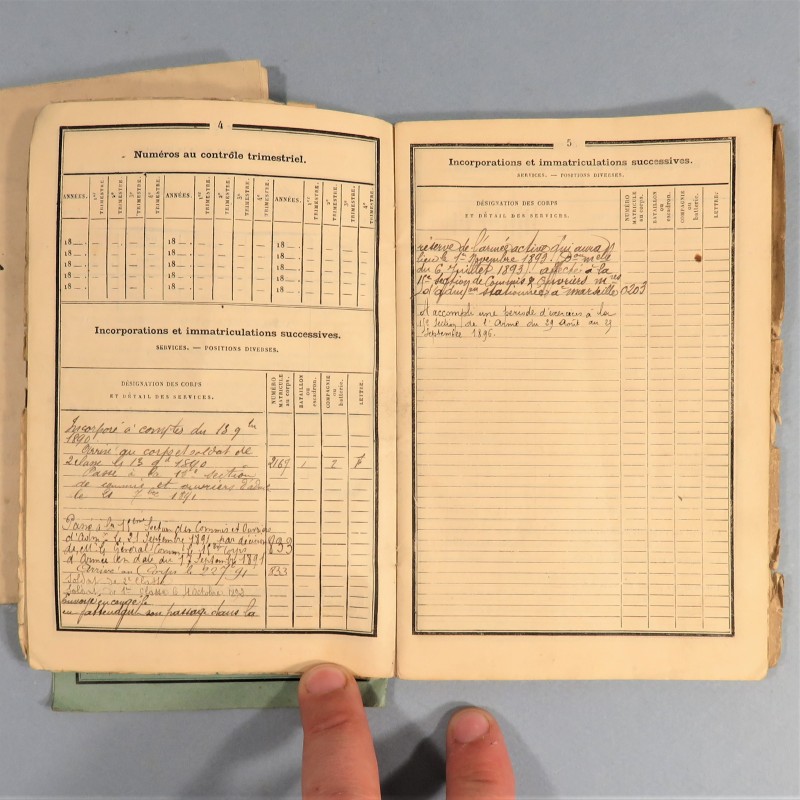 4
Numéros au contrôle trimestriel.
ANNÉES. 1er TRIMESTRE. 2e TRIMESTRE. 3e TRIMESTRE. 4e TRIMESTRE. ANNÉES. 1er TRIMESTRE. 2e TRIMESTRE. 3e TRIMESTRE. 4e TRIMESTRE. ANNÉES. 1er TRIMESTRE. 2e TRIMESTRE. 3e TRIMESTRE. 4e TRIMESTRE.
18 18 18
18 18 18
18 18 18
18 18 18
18 18 18
Incorporations et immatriculations successives.
SERVICES. — POSITIONS DIVERSES.
DÉSIGNATION DES CORPS ET DÉTAIL DES SERVICES. NUMÉRO MATRICULE au corps. BATAILLON ou escadron. COMPAGNIE ou batterie. LETTRE.
Incorporé à compter du 13 9bre
1890
Arrivé au corps et soldat de
2e classe le 13 9bre 1890 2167 1 2
Passé à la section
de commis et ouvriers d'adm
le 21 7bre 1891
Passé à la 15eme Section des Commis et Ouvriers
d'Adm le 21 Septembre 1891 par décision 833
de Mr le Général Comm le 15e Corps
d'Armée en date du 17 Septembre 1891
Arrivé au Corps le 22 7 91 833
Soldat de 2e Classe
Soldat de 1re Classe le Octobre 1892
Envoyé en congé
en attendant son passage dans la
5
Incorporations et immatriculations successives.
SERVICES. — POSITIONS DIVERSES.
DÉSIGNATION DES CORPS ET DÉTAIL DES SERVICES. NUMÉRO MATRICULE au corps. BATAILLON ou escadron. COMPAGNIE ou batterie. LETTRE.
réserve de l'armée active qui aura
lieu le 1er Novembre 1893
du 6 Juillet 1893) affecté à la
15e section de Commis & Ouvriers mres
d'admon stationnée à Marseille 0203
A accompli une période d'exercices à la
15e Section de l' du 29 Août au
Septembre 1896.